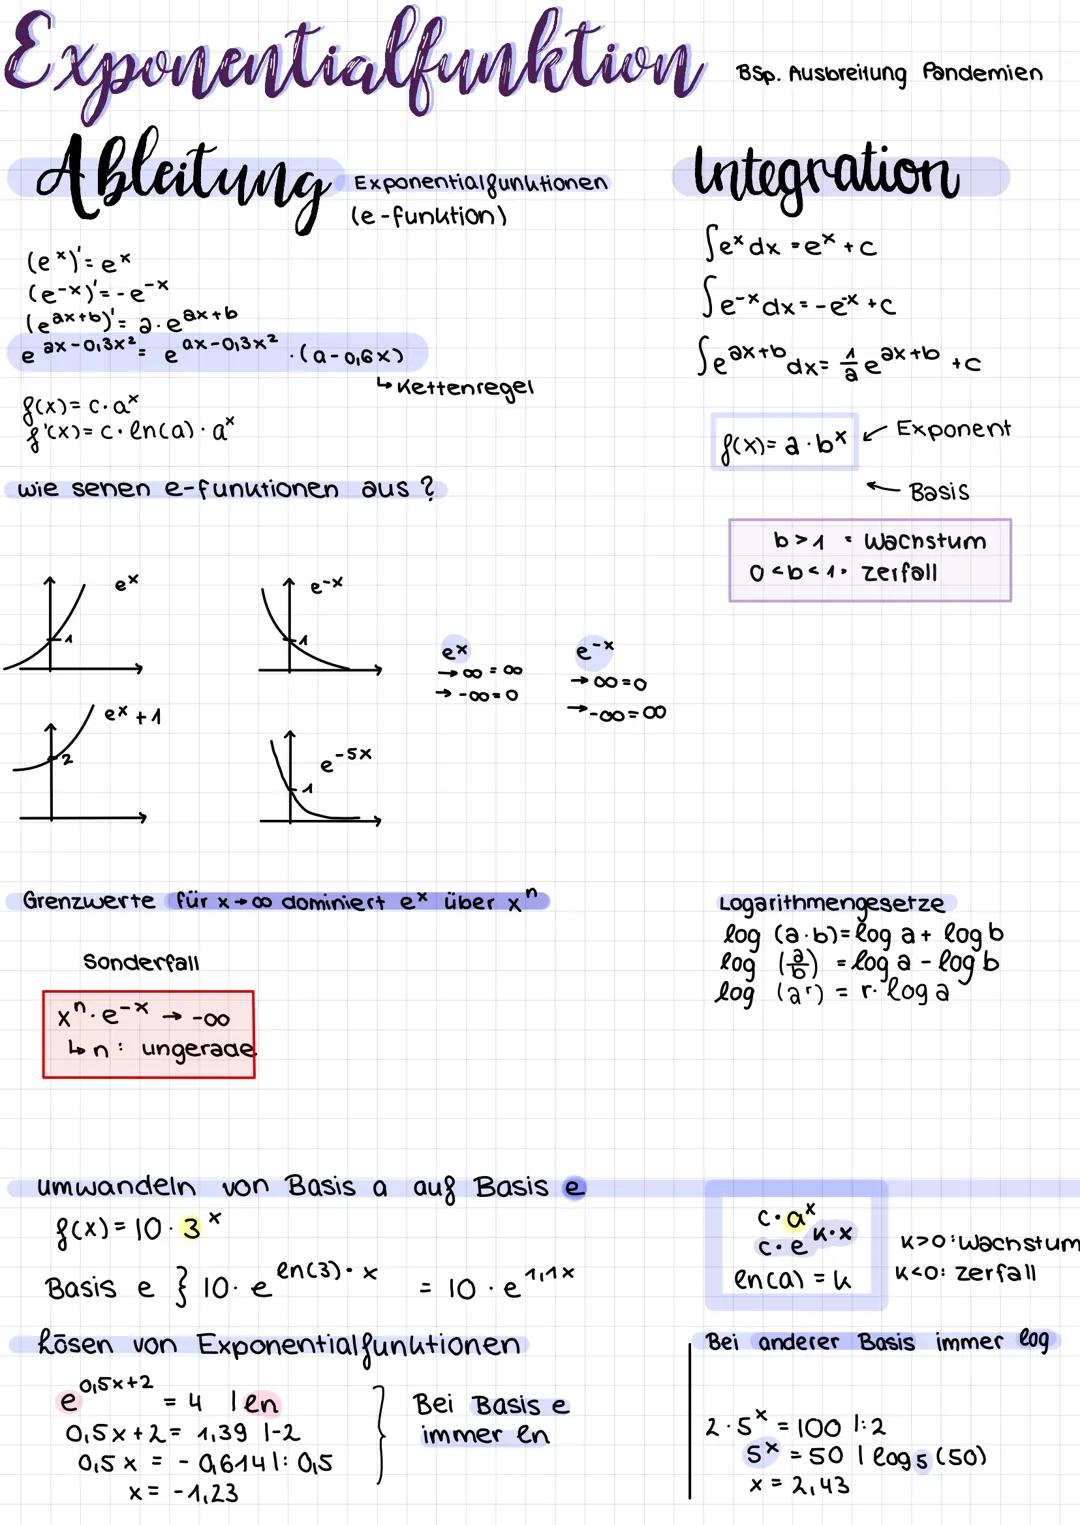 Exponentialfunktion
Bsp. Ausbreitung Pandemien
Ableitung Exponentialfunktionen
(e-funktion)
(eˣ)' = eˣ
(e⁻ˣ)' = -e⁻ˣ
(e^(ax+b))' = a · e^(ax+b)
e^(ax-0,3x²) = e^(ax-0,3x²) · (a-0,6x)
↳ Kettenregel
f(x) = c · aˣ
f'(x) = c · ln(a) · aˣ
Integration
∫eˣ dx = eˣ + c
∫e⁻ˣ dx = -e⁻ˣ + c
∫e^(ax+b) dx = 1/a e^(ax+b) + c
f(x) = a · bˣ ← Exponent
← Basis
b > 1 = Wachstum
0 < b < 1 = zerfall
wie sehen e-funktionen aus?
eˣ
1
e⁻ˣ
1
eˣ
→ ∞ = ∞
→ -∞ = 0
e⁻ˣ
→ ∞ = 0
→ -∞ = ∞
eˣ + 1
2
e^(-5x)
1
Grenzwerte für x → ∞ dominiert eˣ über xⁿ
Sonderfall
xⁿ · e⁻ˣ → -∞
↳ n: ungerade
Logarithmengesetze
log (a·b) = log a + log b
log (a/b) = log a - log b
log (aʳ) = r · log a
umwandeln von Basis a auf Basis e
f(x) = 10 · 3ˣ
Basis e } 10 · e^(ln(3) · x) = 10 · e^(1,1x)
c · aˣ
c · e^(k·x)
ln(a) = k
k>0: Wachstum
k<0: zerfall
Lösen von Exponentialfunktionen
e^(0,5x+2) = 4 | ln
0,5x + 2 = 1,39 |-2
0,5x = -0,614 |: 0,5
x = -1,23
Bei Basis e
immer ln
Bei anderer Basis immer log
2 · 5ˣ = 100 |:2
5ˣ = 50 | log₅ (50)
x = 2,43